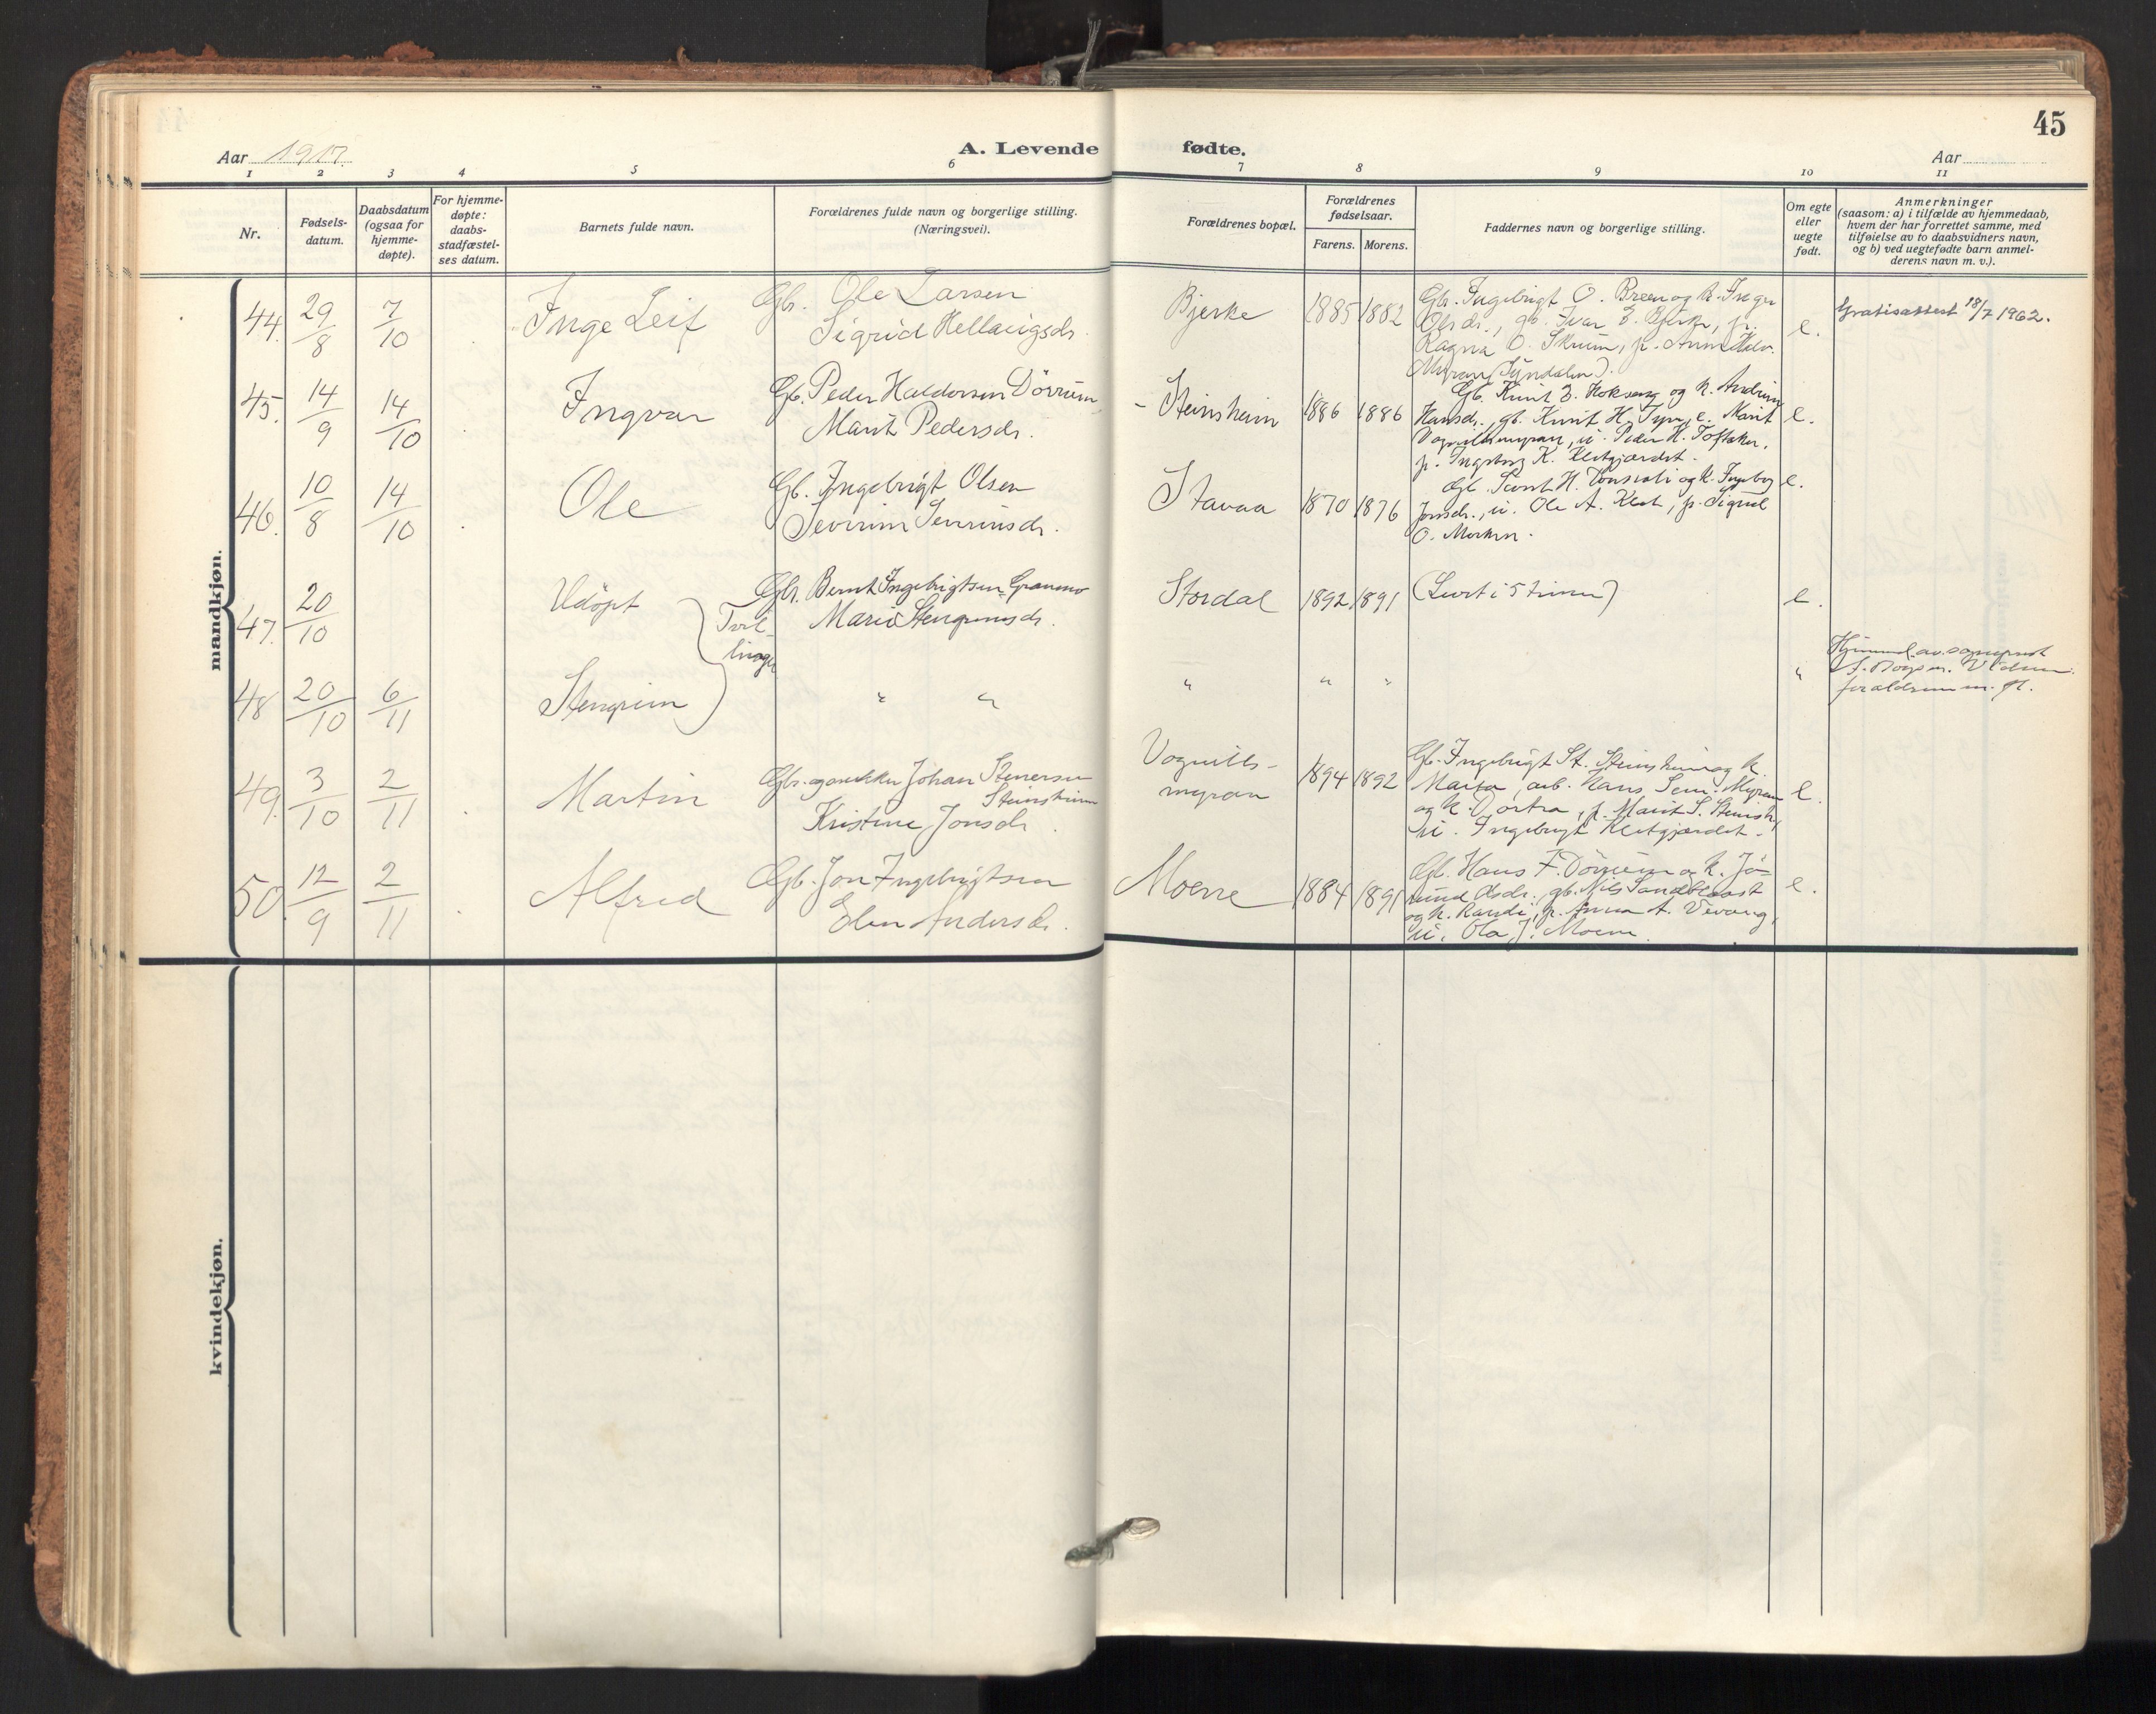 45
Aar 1917.
A. Levende fødte.
Aar
1 2 3 4 5 6 7 8 9 10 11
Nr.
Fødsels-
datum.
Daabsdatum
(ogsaa for
hjemme-
døpte).
For hjemme-
døpte:
daabs-
stadfæstel-
ses datum.
Barnets fulde navn.
Forældrenes fulde navn og borgerlige stilling.
(Næringsvei).
Forældrenes bopæl.
Forældrenes
fødselsaar.
Farens. Morens.
Faddernes navn og borgerlige stilling.
Om egte
eller
uegte
født.
Anmerkninger
(saasom: a) i tilfælde av hjemmedaab,
hvem der har forrettet samme, med
tilføielse av to daabsvidners navn,
og b) ved uegtefødte barn anmel-
derens navn m. v.).
mandkjøn.
44. 29/8 7/10 Inge Leif Gb. Ole Larsen
Sigrid Hellavigsdr.
Bjerke 1885 1882
Gb. Ingebrigt O. Breen og k. Inger
Olsdr., gb. Ivar E. Bjerke, p.
Ragna O. Skrum, p.
Myran
e.
Gratisattest 18/7 1962.
45. 14/9 14/10 Ingvar Gb. Peder Haldorsen Dörrum
Marit Pedersdr.
- Steinsheim 1886 1886
Gb. Knut og k.
Hansdr., gb. Knut H. e. Marit
Vognillsmyran, u. Peder H. Toftaker,
p. Ingeborg K. Kletgjærdet.
e.
46. 10/8 14/10 Ole Gb. Ingebrigt Olsen
Severine Severinsdr.
Stavaa 1870 1876
Gb. H. og k. Ingeborg
Jonsdr., u. Ole A. Klet, p. Sigrid
O. Morken.
e.
47. 20/10 Udöpt Gbr. Bernt Ingebrigtsen Granmo
Marie Stengrimsdr.
Tvil-
linger
Stordal 1892 1891 (Levet i 5 timer) e.
48 20/10 6/11 Stengrim " "
" " " "
Hjemmed. av
forældrene m. fl.
49. 3/10 2/11 Martin Gbr. og Johan Stenersen
Steinsheim
Kristine Jonsdr.
Vognills-
myran
1894 1892
Gb. Ingebrigt St. Steinsheim og k
Marta, arb. Hans Myran
og k. Dortea, p. Marit S. Steinsh.,
u. Ingebrigt Kletgjærdet.
e.
50. 12/9 2/11 Alfred Gb. Jon Ingebrigtsen
Elen Andersdr.
Moene 1884 1891
Gb. Hans F. Dörrum og k. Jö-
rund Olsdr., gb. Nils
og k. Randi, p. Anna A. Vevang,
u. Ola J. Moene.
e.
kvindekjøn.